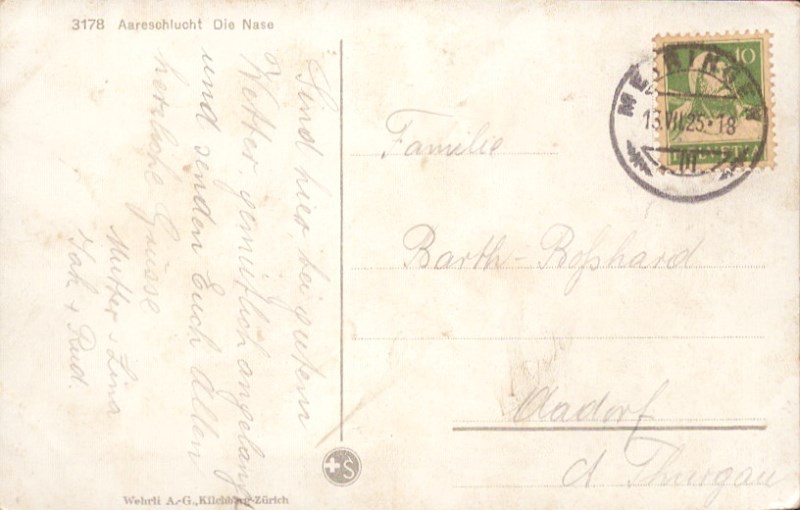 3178 Aareschlucht Die Nase
Sind hier bei gutem
Wetter, gemütlich angelangt
und senden Euch Allen
herzliche Grüsse
Mutter & Lina
Jak & Rud.
MEIRINGEN
13.VII.25.-18
III
10
HELVETIA
Familie
Barth-Boßhard
Aadorf
ct. Thurgau
Wehrli A.-G., Kilchberg-Zürich